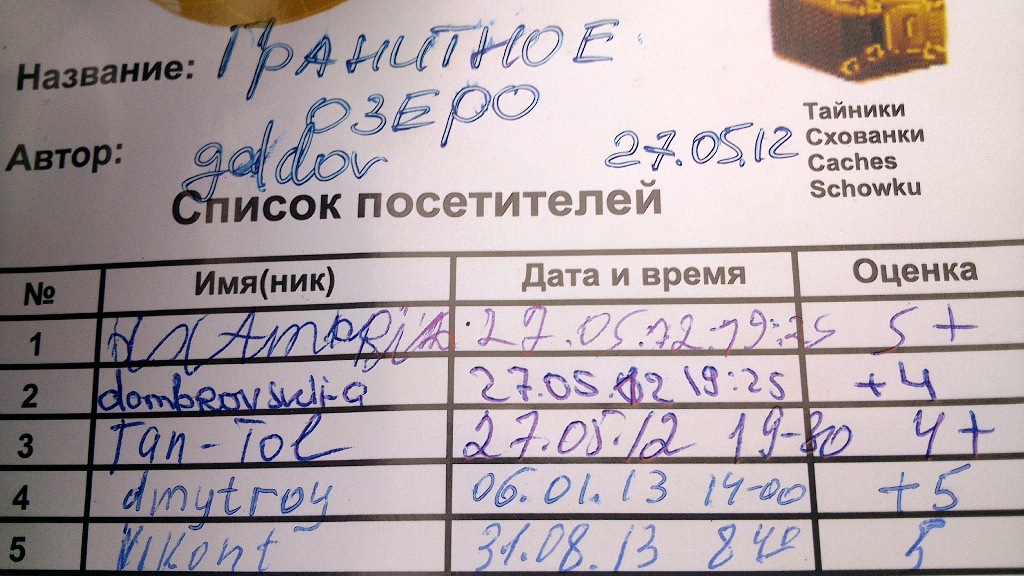 Название: ГРАНИТНОЕ
ОЗЕРО
Автор: goldov 27.05.12
Тайники
Схованки
Caches
Schowku
Список посетителей
№ Имя(ник) Дата и время Оценка
1 27.05.12 19:25 5+
2 27.05.12 19:25 +4
3 Tan-Tol 27.05.12 19-30 4+
4 dmytroy 06.01.13 14-00 +5
5 Vikont 31.08.13 8 40 5